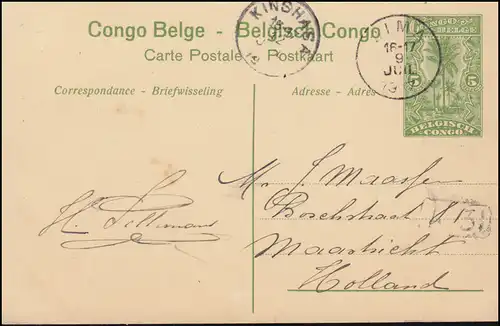 Congo Belge - Belgisch Congo
Carte Postale - Postkaart
Correspondance - Briefwisseling
Adresse - Adres
KINSHASA
15
BOMA
16-17
9
JUIL
CONGO
BELGE
5
5
BELGISCH
CONGO
Mr. J. Maassen
Boschstraat 81
Maastricht
Holland
H.
38